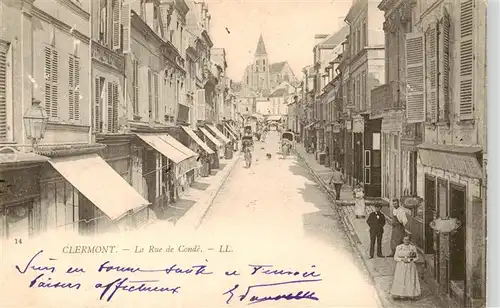 14
CLERMONT. — La Rue de Condé. — LL.
Suis en bonne santé et t'envoie
baisers affectueux